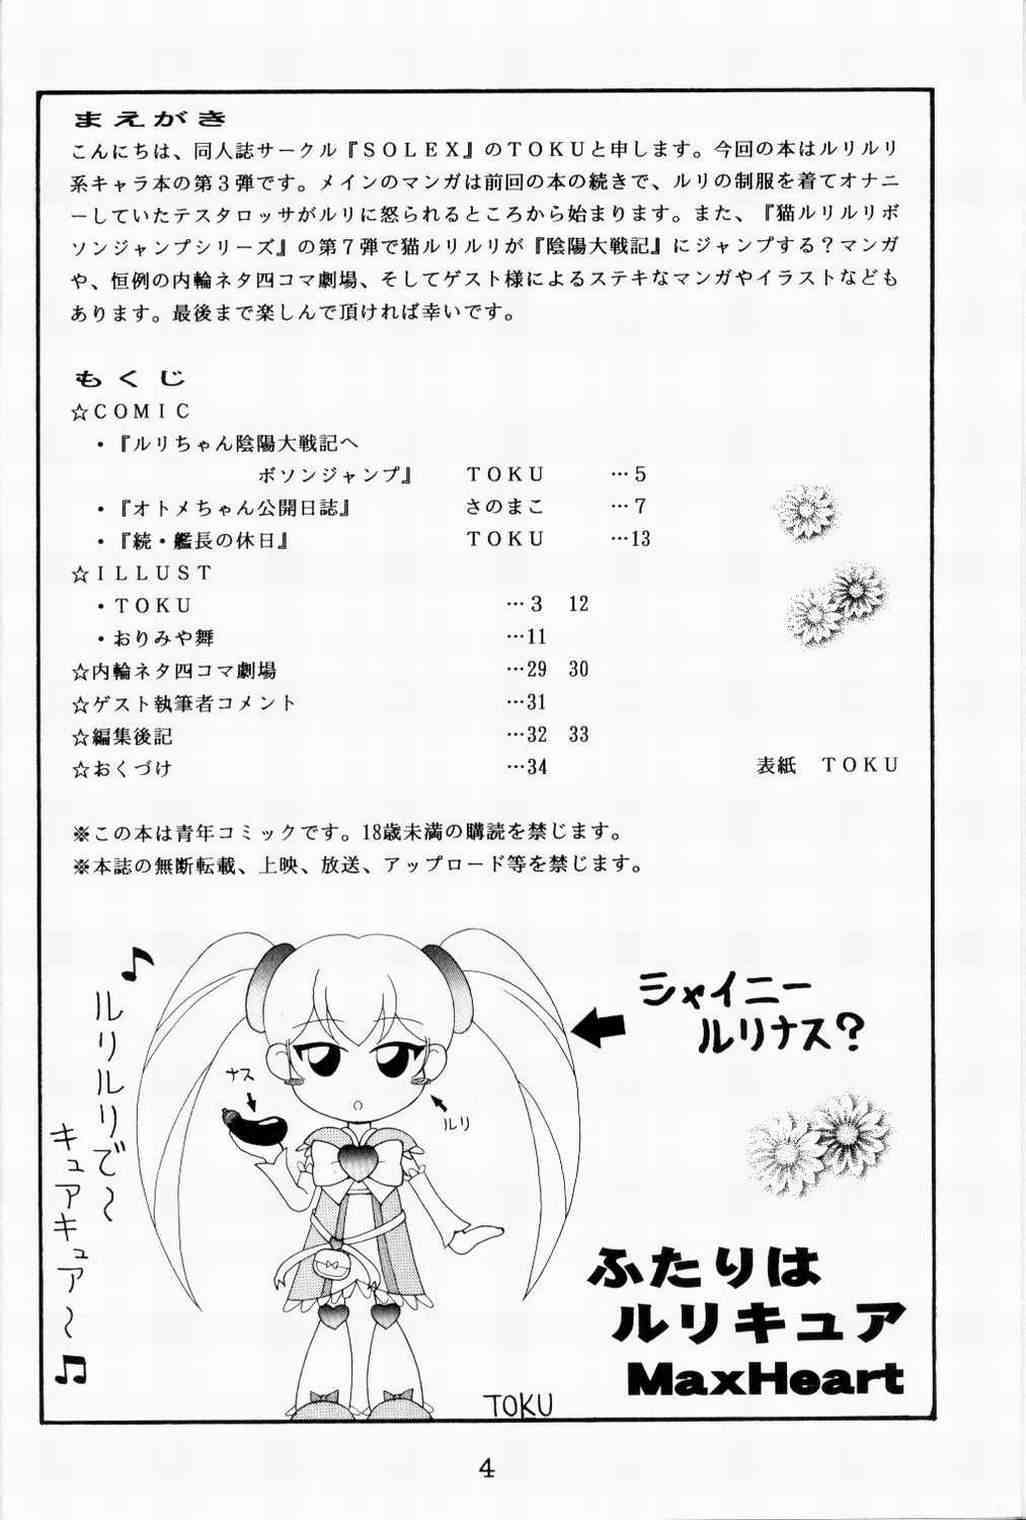 まえがき
こんにちは、同人誌サークル『SOLEX』のTOKUと申します。今回の本はルリルリ
系キャラ本の第3弾です。メインのマンガは前回の本の続きで、ルリの制服を着てオナニ
ーしていたテスタロッサがルリに怒られるところから始まります。また、『猫ルリルリボ
ソンジャンプシリーズ』の第7弾で猫ルリルリが『陰陽大戦記』にジャンプする?マンガ
や、恒例の内輪ネタ四コマ劇場、そしてゲスト様によるステキなマンガやイラストなども
あります。最後まで楽しんで頂ければ幸いです。
もくじ
☆COMIC
・『ルリちゃん陰陽大戦記へ
ボソンジャンプ』 TOKU …5
・『オトメちゃん公開日誌』 さのまこ …7
・『続・艦長の休日』 TOKU …13
☆ILLUST
・TOKU …3 12
・おりみや舞 …11
☆内輪ネタ四コマ劇場 …29 30
☆ゲスト執筆者コメント …31
☆編集後記 …32 33
☆おくづけ …34 表紙 TOKU
※この本は青年コミックです。18歳未満の購読を禁じます。
※本誌の無断転載、上映、放送、アップロード等を禁じます。
♪ルリルリで〜
キュアキュア〜♫
ナス
ルリ
シャイニー
ルリナス?
ふたりは
ルリキュア
MaxHeart
TOKU
4